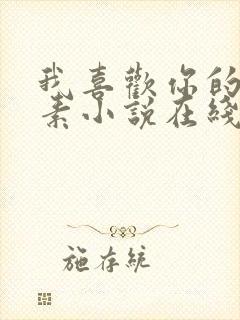 我喜歡你的
素小說在綫
施存統